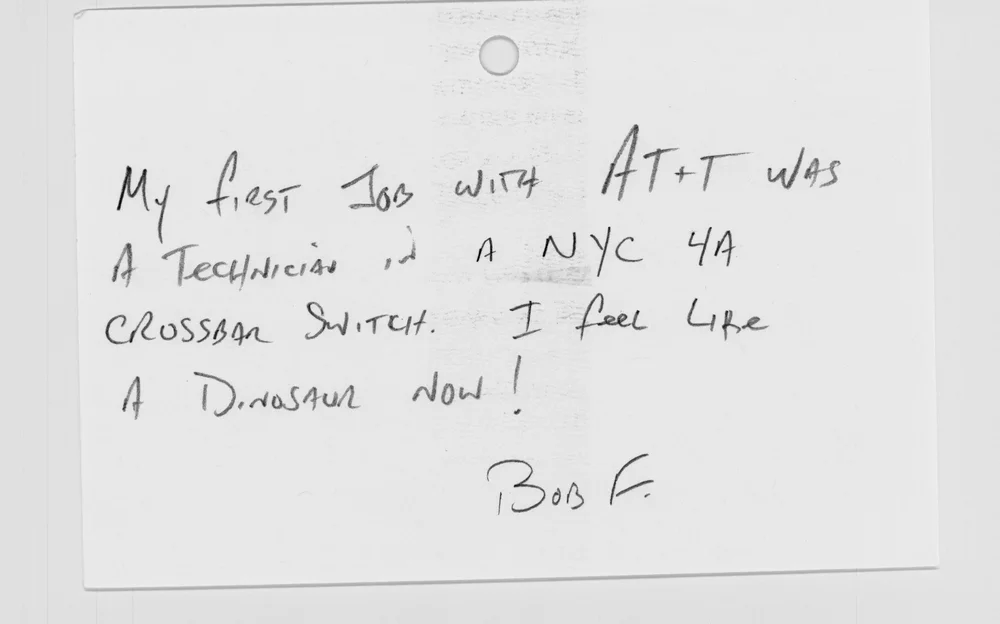 My first Job with AT+T was
A Technician in A NYC 4A
Crossbar Switch. I feel Like
A Dinosaur now!
Bob F.